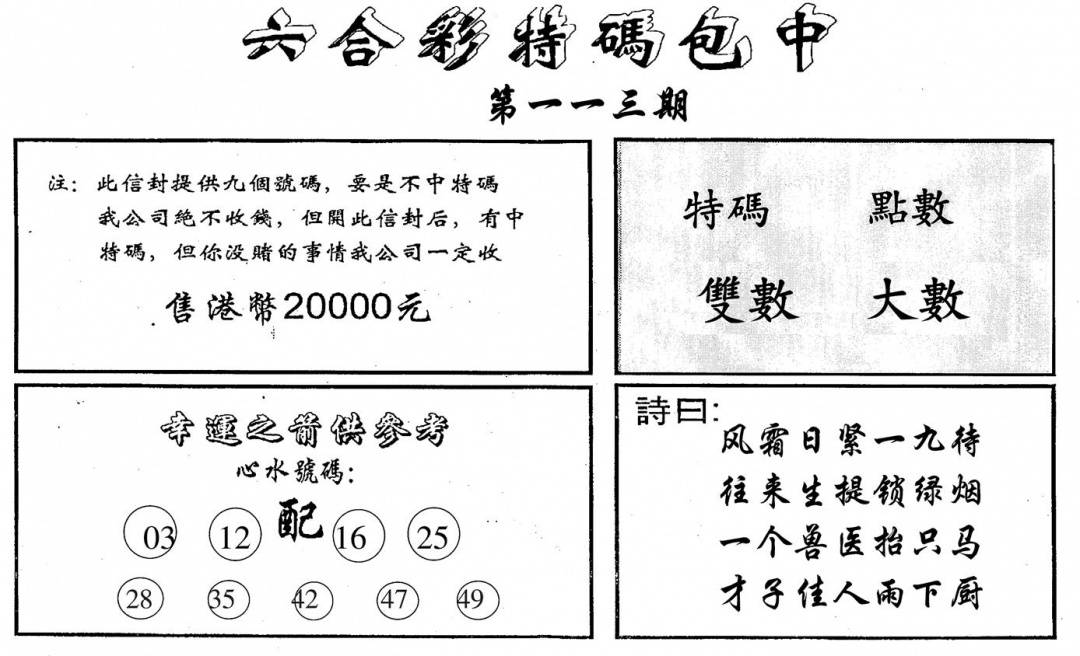 六合彩特碼包中
第一一三期
注：此信封提供九個號碼，要是不中特碼
我公司絕不收錢，但開此信封后，有中
特碼，但你没賭的事情我公司一定收
售港幣20000元
特碼 點數
雙數 大數
幸運之箭供參考
心水號碼：
03 12 配 16 25
28 35 42 47 49
詩曰：
风霜日紧一九待
往来生提锁绿烟
一个兽医抬只马
才子佳人雨下厨